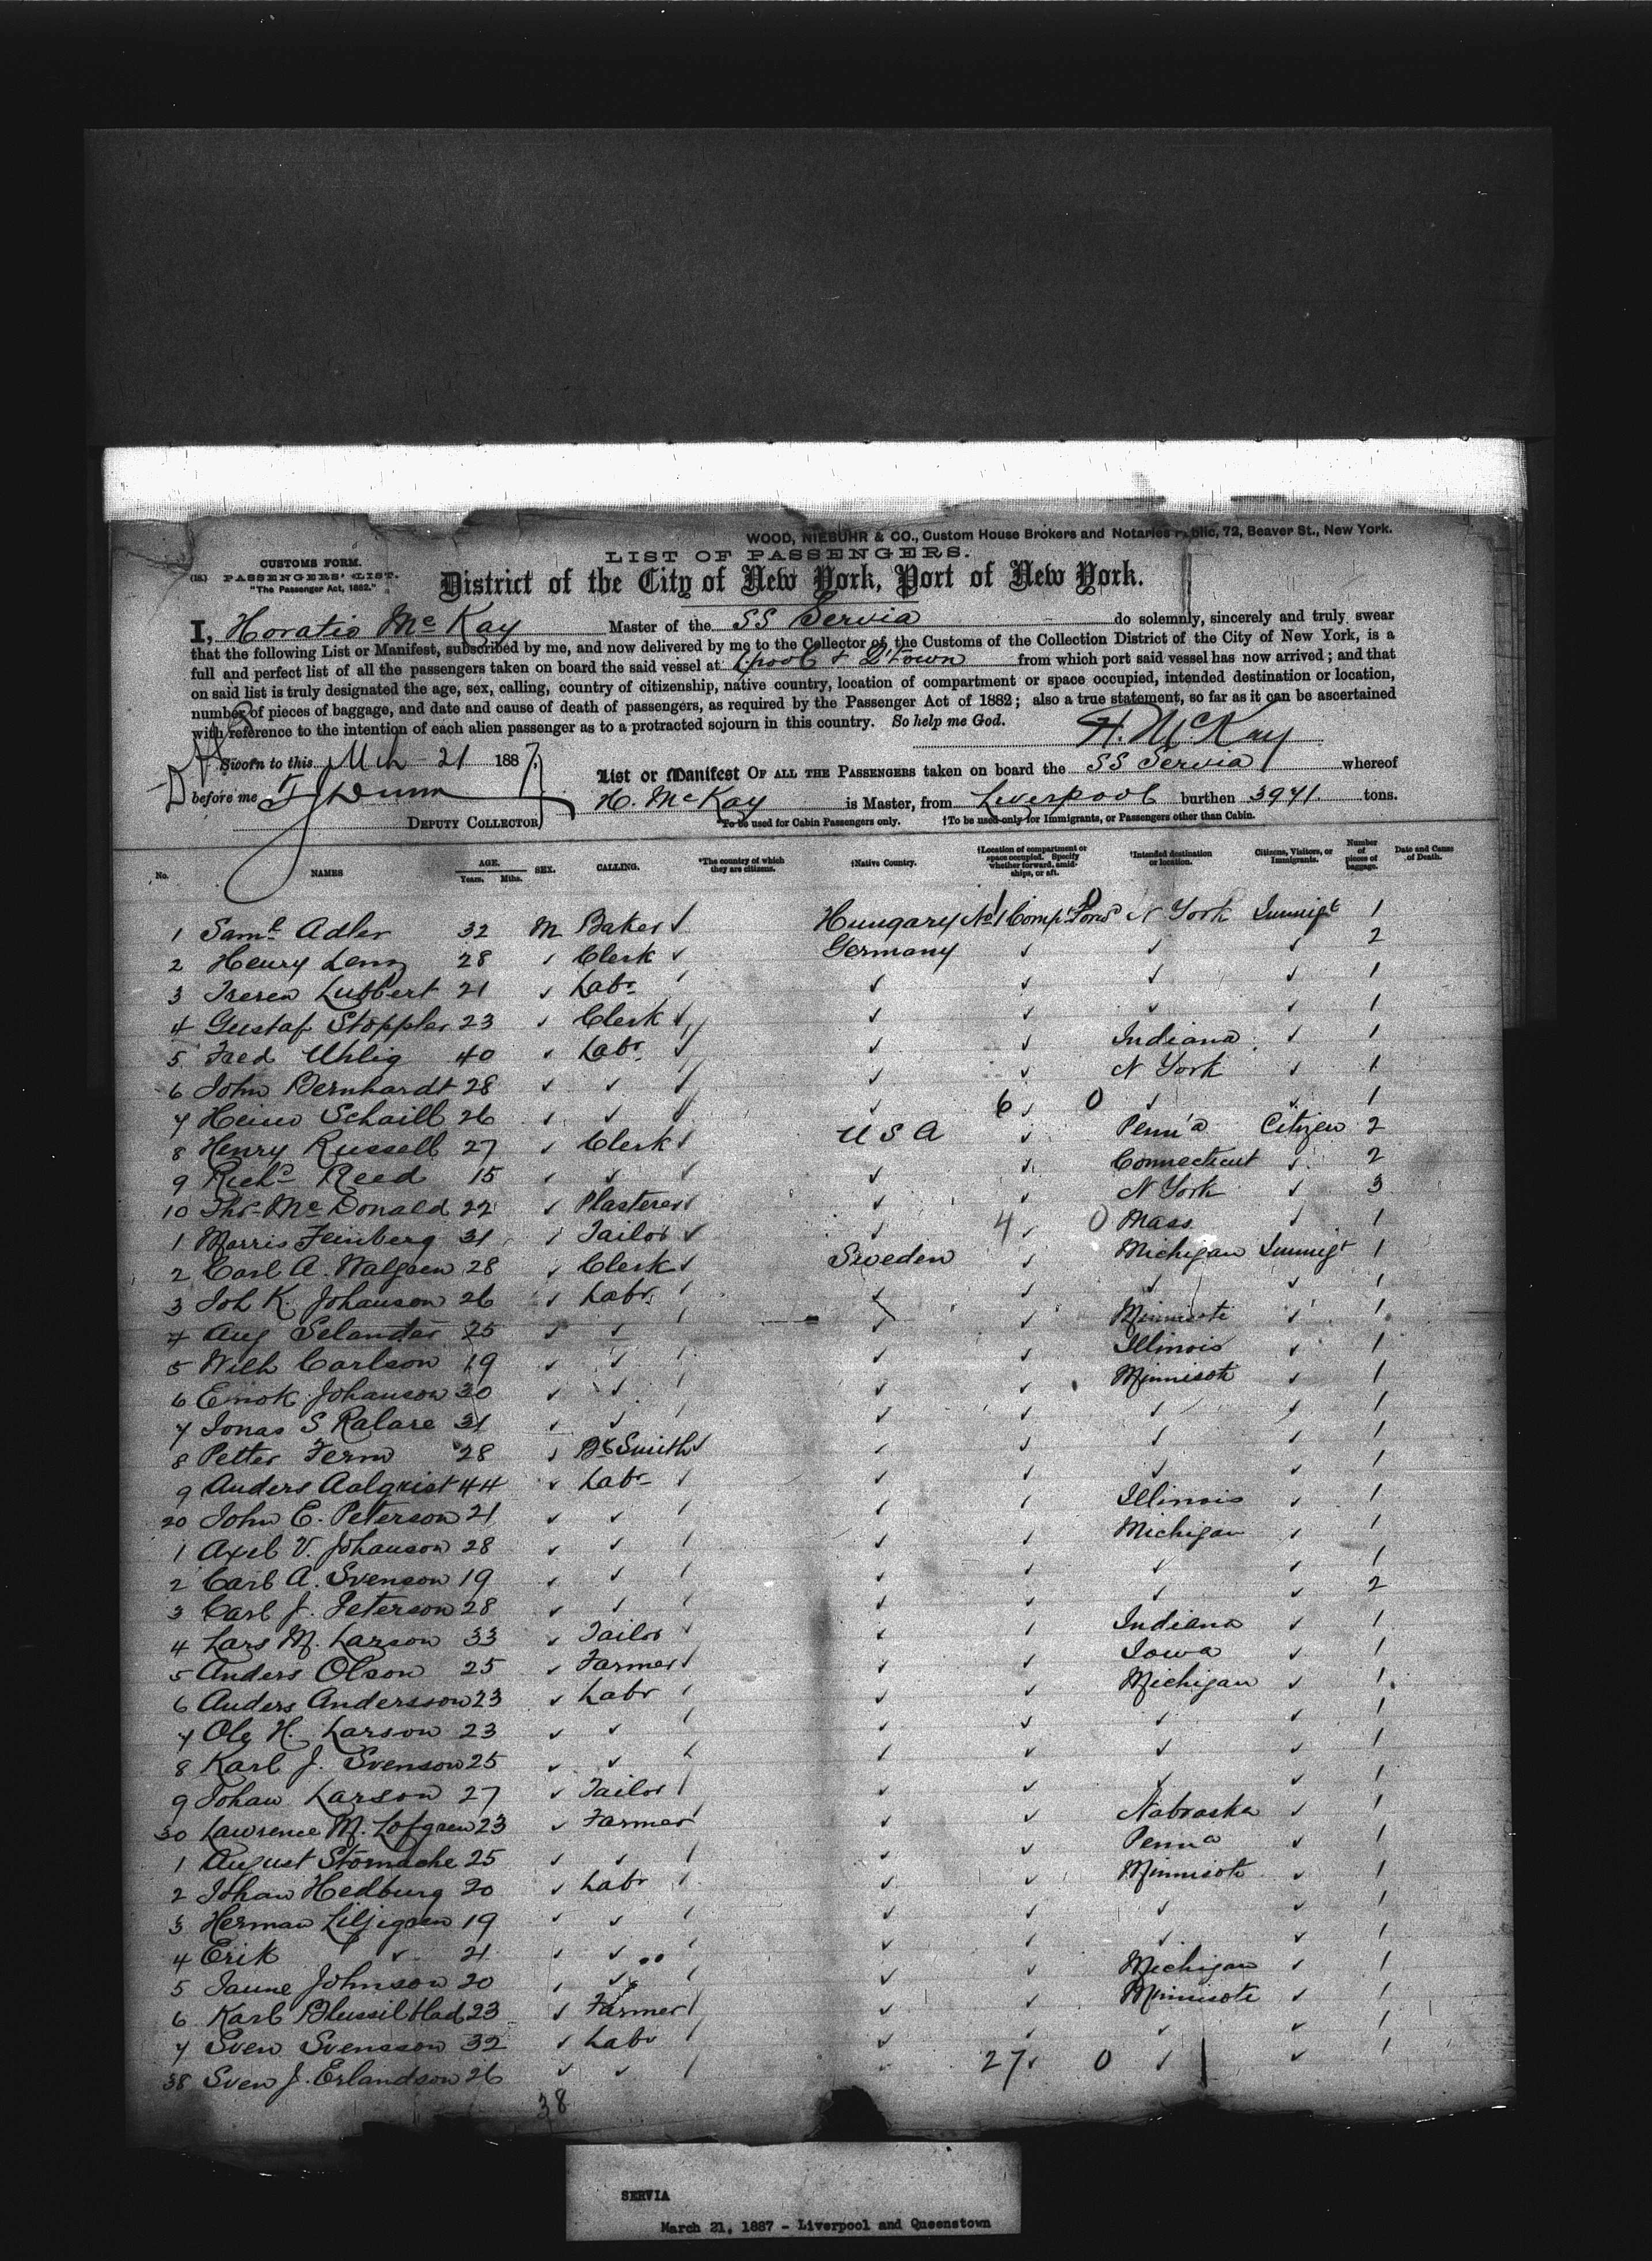 WOOD, NIEBUHR & CO., Custom House Brokers and Notaries Public, 72, Beaver St., New York.
LIST OF PASSENGERS.
CUSTOMS FORM.
(18.) PASSENGERS' LIST.
"The Passenger Act, 1882."
District of the City of New York, Port of New York.
I, Horatio McKay Master of the SS Servia do solemnly, sincerely and truly swear
that the following List or Manifest, subscribed by me, and now delivered by me to the Collector of the Customs of the Collection District of the City of New York, is a
full and perfect list of all the passengers taken on board the said vessel at L'pool & Q'town from which port said vessel has now arrived; and that
on said list is truly designated the age, sex, calling, country of citizenship, native country, location of compartment or space occupied, intended destination or location,
number of pieces of baggage, and date and cause of death of passengers, as required by the Passenger Act of 1882; also a true statement, so far as it can be ascertained
with reference to the intention of each alien passenger as to a protracted sojourn in this country. So help me God.
H. McKay
Sworn to this Mch 21 1887,
before me Dunn
DEPUTY COLLECTOR
List or Manifest OF ALL THE PASSENGERS taken on board the SS Servia whereof
H. McKay is Master, from Liverpool burthen 3941 tons.
*To be used for Cabin Passengers only. †To be used only for Immigrants, or Passengers other than Cabin.
No. NAMES AGE. Years. Mths. SEX. CALLING. *The country of which they are citizens. †Native Country. †Location of compartment or space occupied. Specify whether forward, amidships, or aft. †Intended destination or location. Citizens, Visitors, or Immigrants. Number of pieces of baggage. Date and Cause of Death.
1 Saml Adler 32 M Baker ✓ Hungary No 1 Compt Ford N York Immigt 1
2 Henry Lenz 28 ✓ Clerk ✓ Germany ✓ ✓ ✓ 2
3 Lubbert 21 ✓ Labr ✓ ✓ ✓ ✓ 1
4 Gustaf Stoppler 23 ✓ Clerk ✓ ✓ ✓ ✓ 1
5 Fred Uhlig 40 ✓ Labr ✓ ✓ Indiana ✓ 1
6 John Bernhardt 28 ✓ ✓ ✓ ✓ N York ✓ 1
7 Schaill 26 ✓ ✓ ✓ 6 ✓ 0 ✓ ✓ 1
8 Henry Russell 27 ✓ Clerk ✓ U S A ✓ Penn'a Citizen 2
9 Richd Reed 15 ✓ ✓ ✓ ✓ Connecticut ✓ 2
10 Thos McDonald 22 ✓ Plasterer ✓ ✓ N York ✓ 3
1 Morris Feinberg 31 ✓ Tailor ✓ ✓ 4 ✓ 0 Mass ✓ 1
2 Carl A. Walgren 28 ✓ Clerk ✓ Sweden ✓ Michigan Immigt 1
3 Joh K. Johanson 26 ✓ Labr ✓ ✓ ✓ ✓ 1
4 Aug Selander 25 ✓ ✓ ✓ ✓ Minnisota ✓ 1
5 Wilh Carlson 19 ✓ ✓ ✓ ✓ Illinois ✓ 1
6 Enok Johanson 30 ✓ ✓ ✓ ✓ Minnisota ✓ 1
7 Jonas S Ralare 31 ✓ ✓ ✓ ✓ ✓ ✓ 1
8 Petter Ferm 28 ✓ Bl Smith ✓ ✓ ✓ ✓ 1
9 Anders Aalqvist 44 ✓ Labr ✓ ✓ ✓ ✓ 1
20 John E. Peterson 21 ✓ ✓ ✓ ✓ Illinois ✓ 1
1 Axel V. Johanson 28 ✓ ✓ ✓ ✓ Michigan ✓ 1
2 Carl A. Svenson 19 ✓ ✓ ✓ ✓ ✓ ✓ 1
3 Carl J. Peterson 28 ✓ ✓ ✓ ✓ ✓ ✓ 2
4 Lars M. Larson 33 ✓ Tailor ✓ ✓ Indiana ✓ 1
5 Anders Olson 25 ✓ Farmer ✓ ✓ Iowa ✓ 1
6 Anders Andersson 23 ✓ Labr ✓ ✓ Michigan ✓ 1
7 Ole H. Larson 23 ✓ ✓ ✓ ✓ ✓ ✓ 1
8 Karl J. Svenson 25 ✓ ✓ ✓ ✓ ✓ ✓ 1
9 Johan Larson 27 ✓ Tailor ✓ ✓ ✓ ✓ 1
30 Lawrence M. Lofgren 23 ✓ Farmer ✓ ✓ Nabraska ✓ 1
1 August Stomache 25 ✓ ✓ ✓ ✓ Penna ✓ 1
2 Johan Hedburg 20 ✓ Labr ✓ ✓ Minnisota ✓ 1
3 Herman Liljigren 19 ✓ ✓ ✓ ✓ ✓ ✓ 1
4 Erik ✓ 21 ✓ ✓ ✓ ✓ ✓ ✓ 1
5 Johnson 20 ✓ ✓ ✓ ✓ Michigan ✓ 1
6 Karl 23 ✓ Farmer ✓ ✓ Minnisota ✓ 1
7 Sven Svensson 32 ✓ Labr ✓ ✓ ✓ ✓ 1
38 Sven J. Erlandson 26 ✓ ✓ 27 ✓ 0 ✓ ✓ 1
38
SERVIA
March 21, 1887 - Liverpool and Queenstown